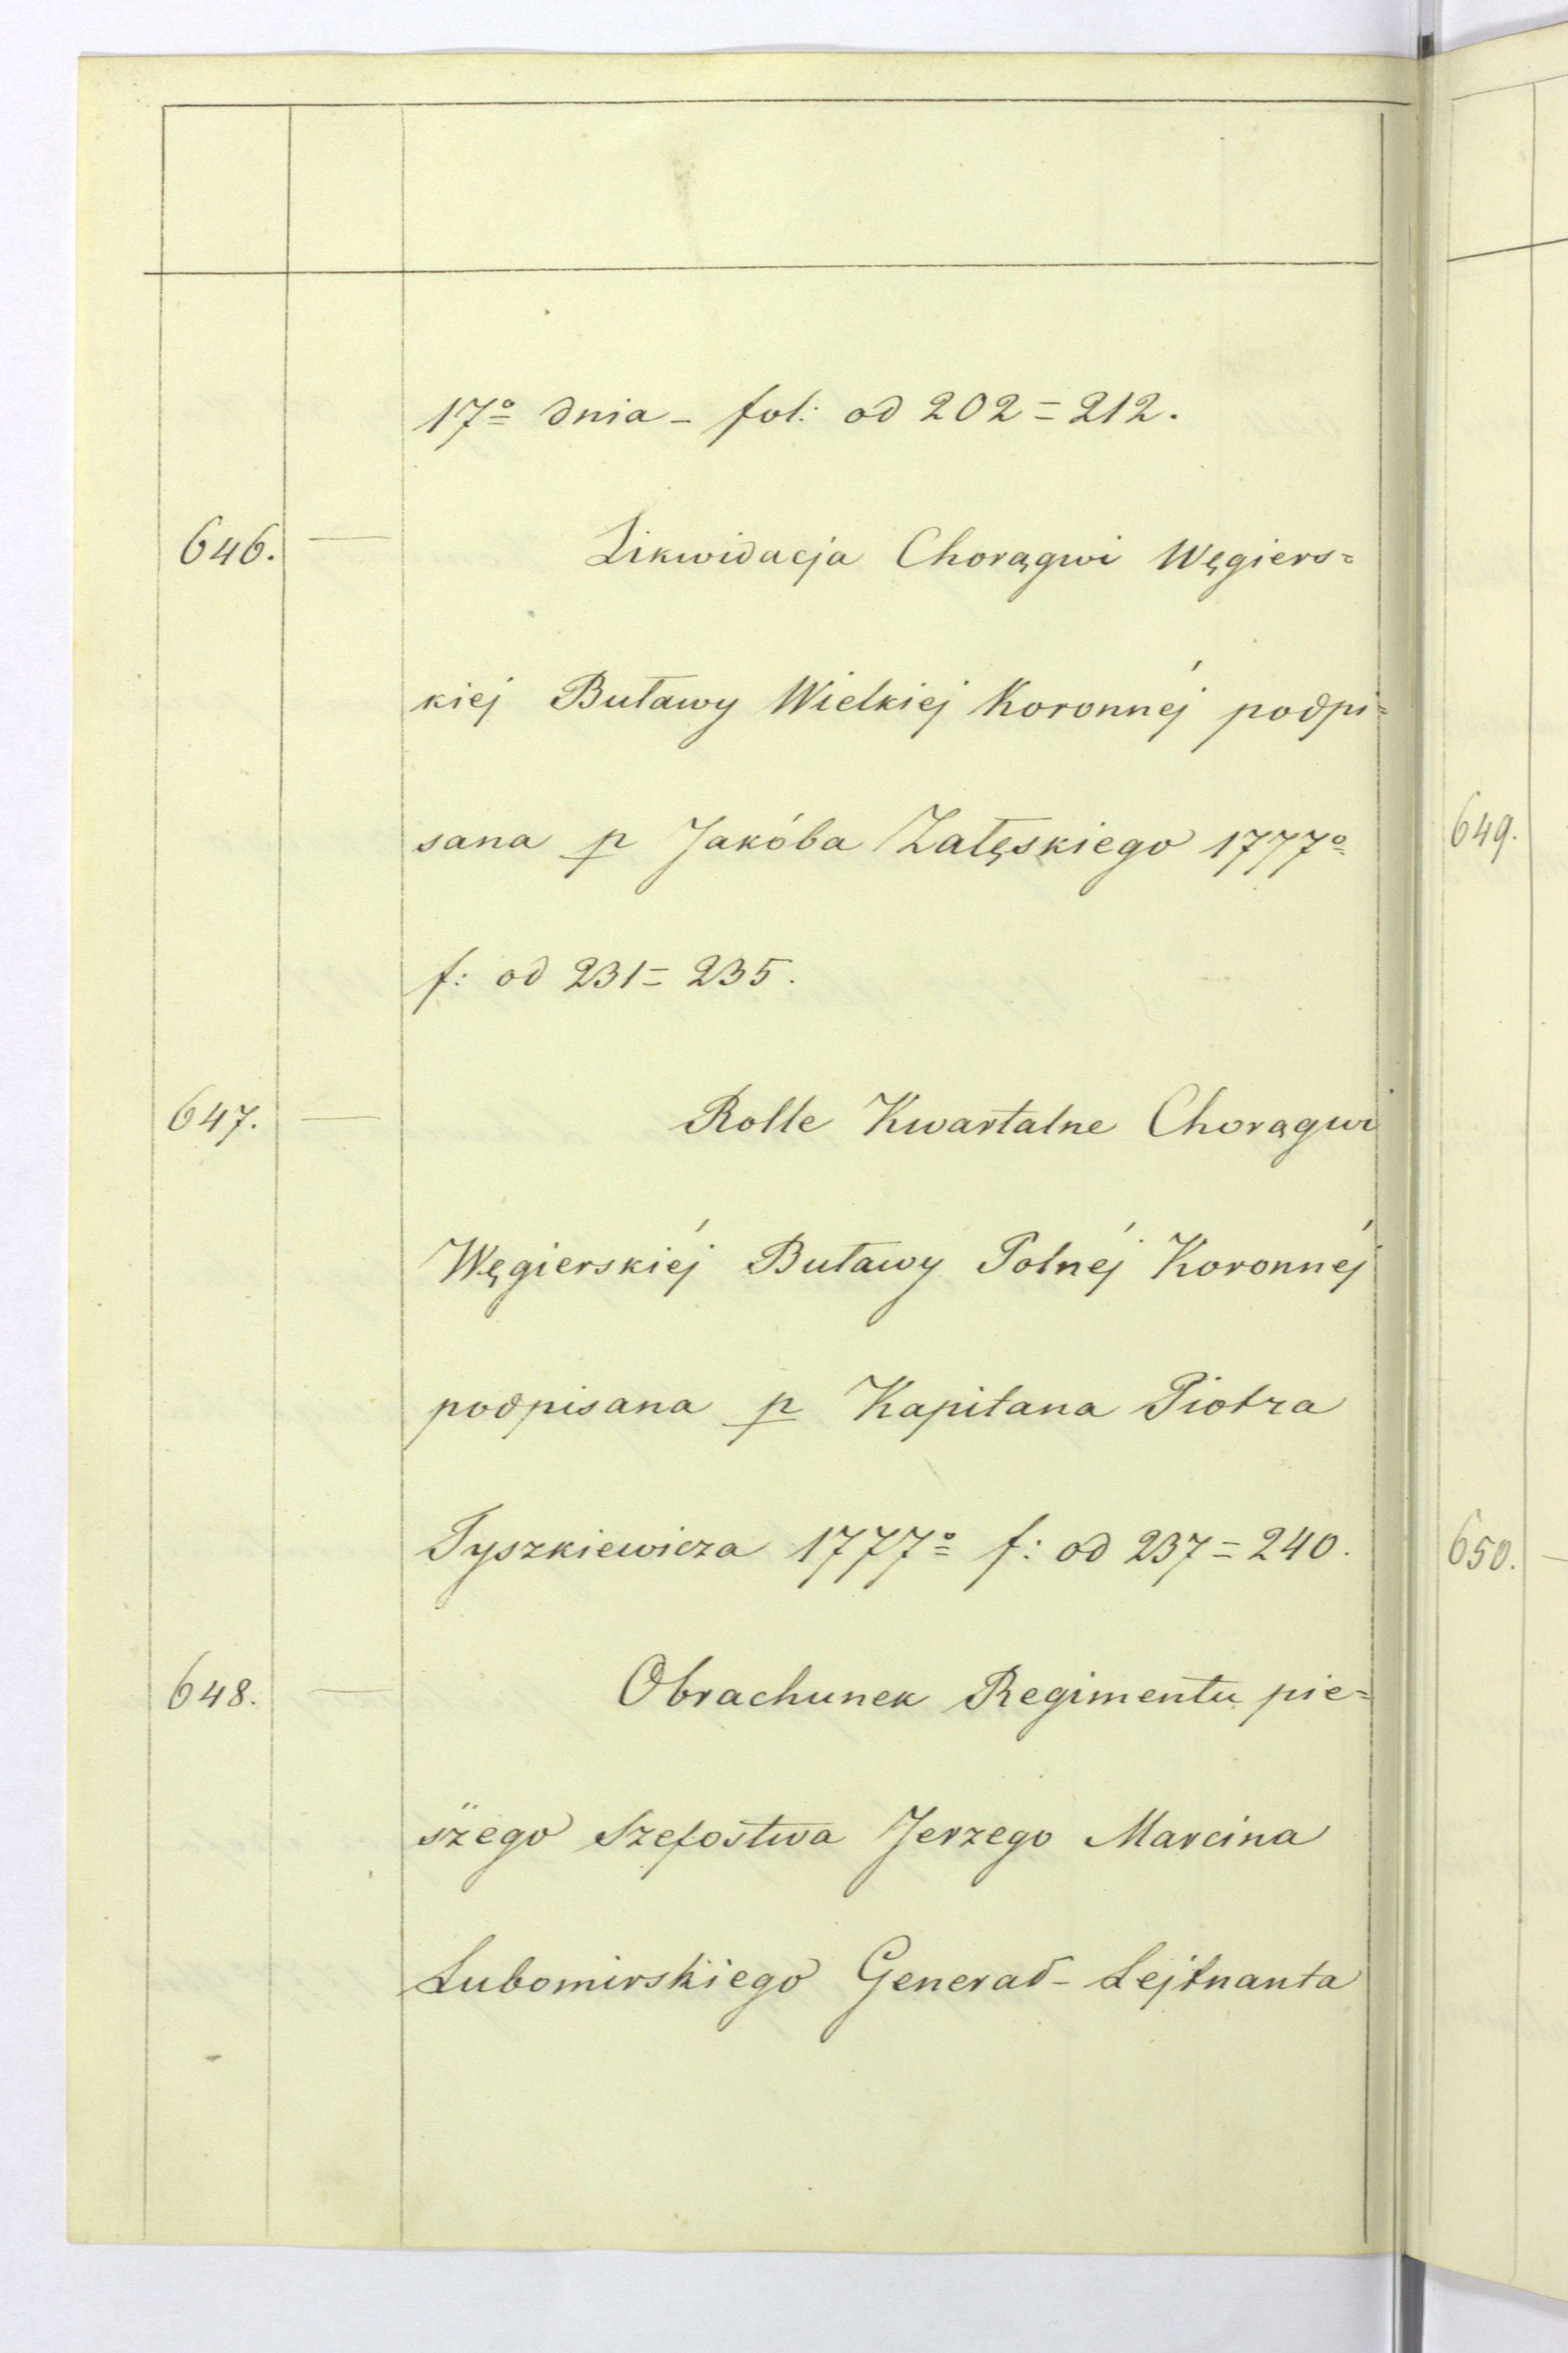 17º dnia - fol: od 202 = 212.
646. — Likwidacja Chorągwi Węgiers=
kiej Buławy Wielkiej Koronnéj podpi=
sana p Jakóba Załęskiego 1777º
f: od 231 = 235.
647. — Rolle Kwartalne Chorągwi
Węgierskiéj Buławy Polnéj Koronnéj
podpisana p Kapitana Piotra
Tyszkiewicza 1777º f: od 237 = 240.
648. — Obrachunek Regimentu pie=
szego Szefostwa Jerzego Marcina
Lubomirskiego Generał - Lejtnanta
649.
650. —